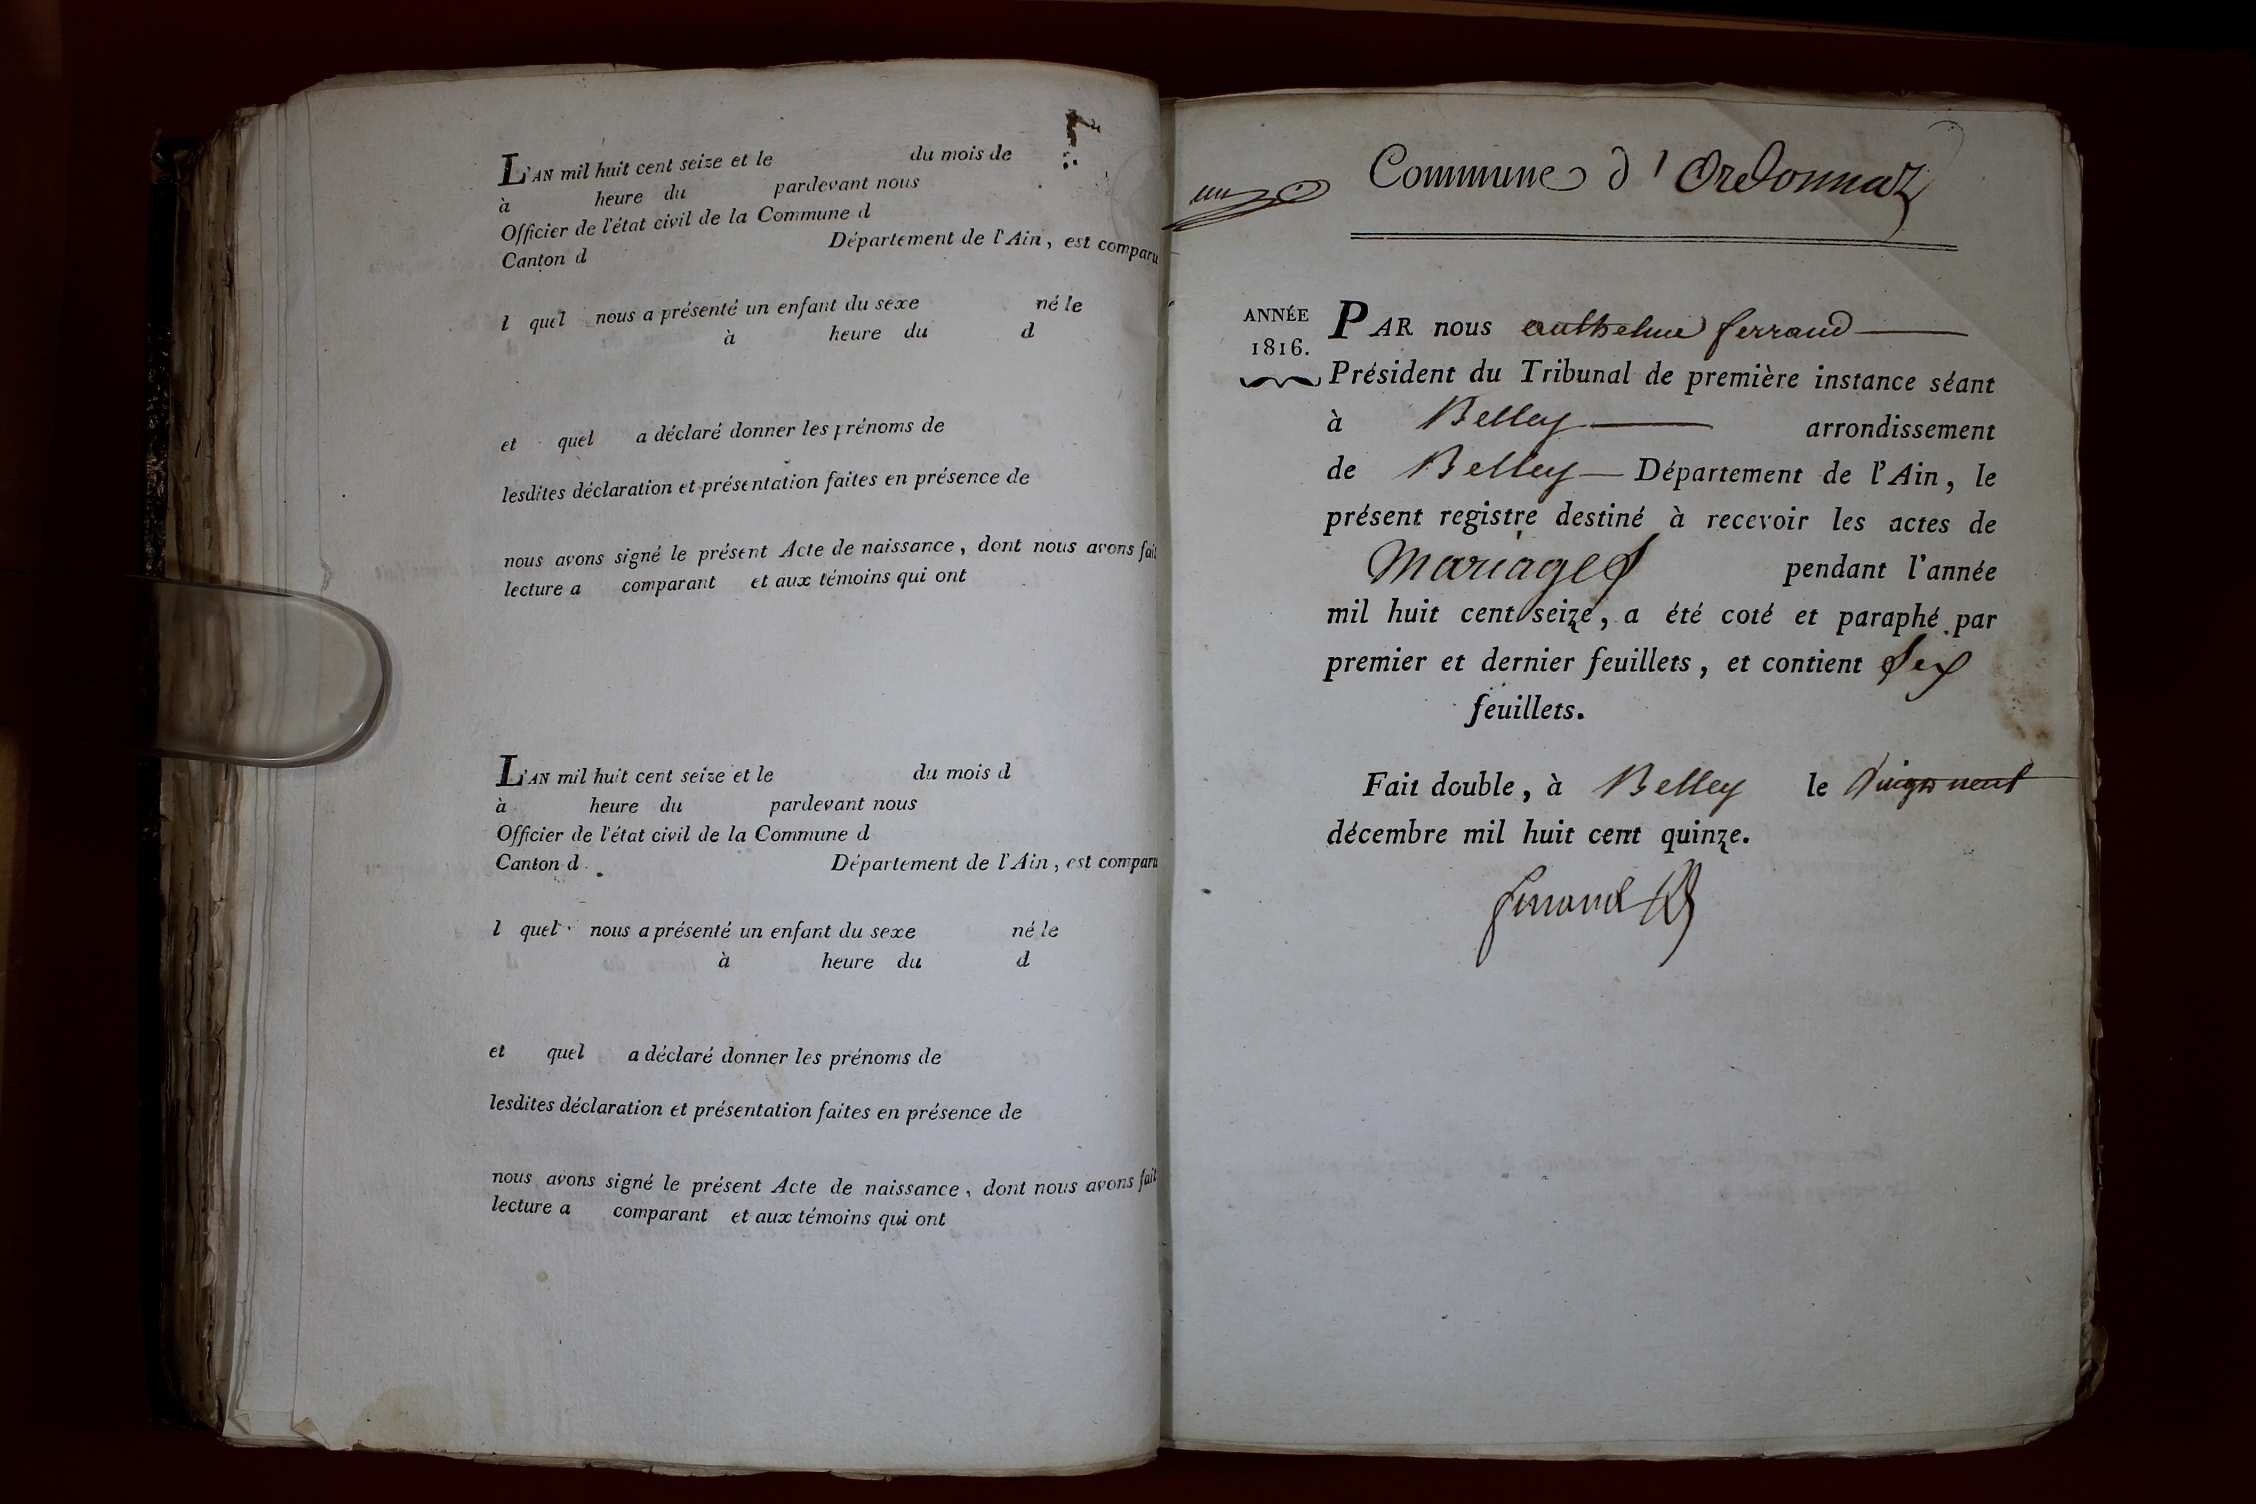 L'AN mil huit cent seize et le du mois de
à heure du pardevant nous
Officier de l'état civil de la Commune d
Canton d Département de l'Ain, est comparu
l quel nous a présenté un enfant du sexe né le
à heure du d
et quel a déclaré donner les prénoms de
lesdites déclaration et présentation faites en présence de
nous avons signé le présent Acte de naissance, dont nous avons fait
lecture a comparant et aux témoins qui ont
L'AN mil huit cent seize et le du mois d
à heure du pardevant nous
Officier de l'état civil de la Commune d
Canton d Département de l'Ain, est comparu
l quel nous a présenté un enfant du sexe né le
à heure du d
et quel a déclaré donner les prénoms de
lesdites déclaration et présentation faites en présence de
nous avons signé le présent Acte de naissance, dont nous avons fait
lecture a comparant et aux témoins qui ont
un
Commune d'Ordonnaz
ANNÉE
1816.
PAR nous anthelme ferrand
Président du Tribunal de première instance séant
à Belley arrondissement
de Belley Département de l'Ain, le
présent registre destiné à recevoir les actes de
Mariages pendant l'année
mil huit cent seize, a été coté et paraphé par
premier et dernier feuillets, et contient Six
feuillets.
Fait double, à Belley le vingt neuf
décembre mil huit cent quinze.
ferrand